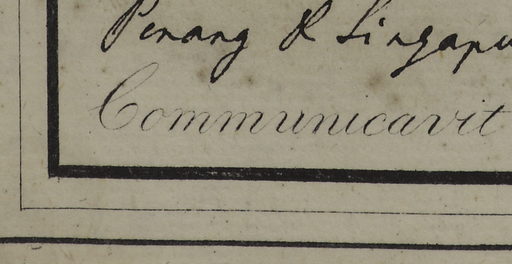 Penang & Singapu
Communicavit